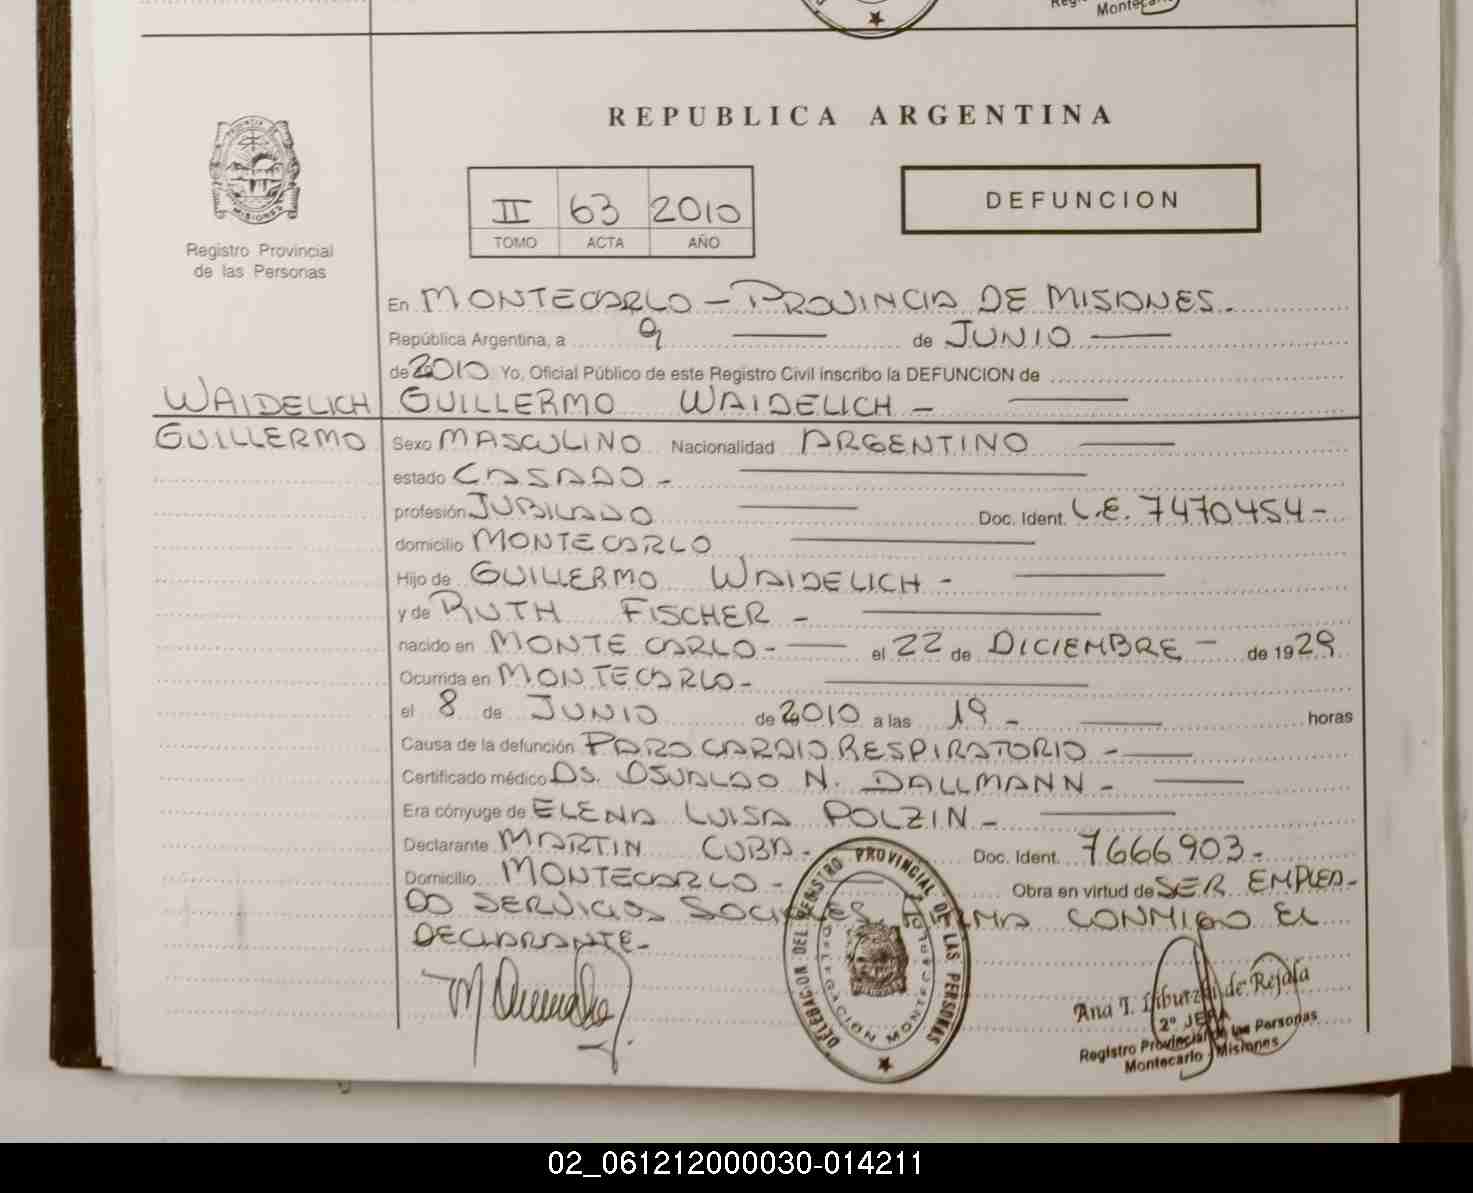 Montecarlo
REPUBLICA ARGENTINA
PROVINCIA DE
MISIONES
Registro Provincial
de las Personas
II 63 2010
TOMO ACTA AÑO
DEFUNCION
En MONTECARLO - PROVINCIA DE MISIONES.
República Argentina, a 9 de JUNIO
de 2010 Yo, Oficial Público de este Registro Civil inscribo la DEFUNCION de
WAIDELICH GUILLERMO WAIDELICH -
GUILLERMO Sexo MASCULINO Nacionalidad ARGENTINO
estado CASADO -
profesión JUBILADO Doc. Ident. L.E. 7470454 -
domicilio MONTECARLO
Hijo de GUILLERMO WAIDELICH -
y de RUTH FISCHER -
nacido en MONTE CARLO - el 22 de DICIEMBRE - de 1929
Ocurrida en MONTECARLO -
el 8 de JUNIO de 2010 a las 19 - horas
Causa de la defunción PARO CARDIO RESPIRATORIO -
Certificado médico DS. OSVALDO N. DALLMANN -
Era cónyuge de ELENA LUISA POLZIN -
Declarante MARTIN CUBA - Doc. Ident. 7666903 -
Domicilio MONTECARLO - Obra en virtud de SER EMPLEA-
DO SERVICIOS SOCIALES. FIRMA CONMIGO EL
DECLARANTE -
DELEGACION DEL REGISTRO PROVINCIAL DE LAS PERSONAS
DELEGACION MONTECARLO
Ana T. de Rejala
2º JEFA
Registro Provincial de las Personas
Montecarlo - Misiones
02_061212000030-014211